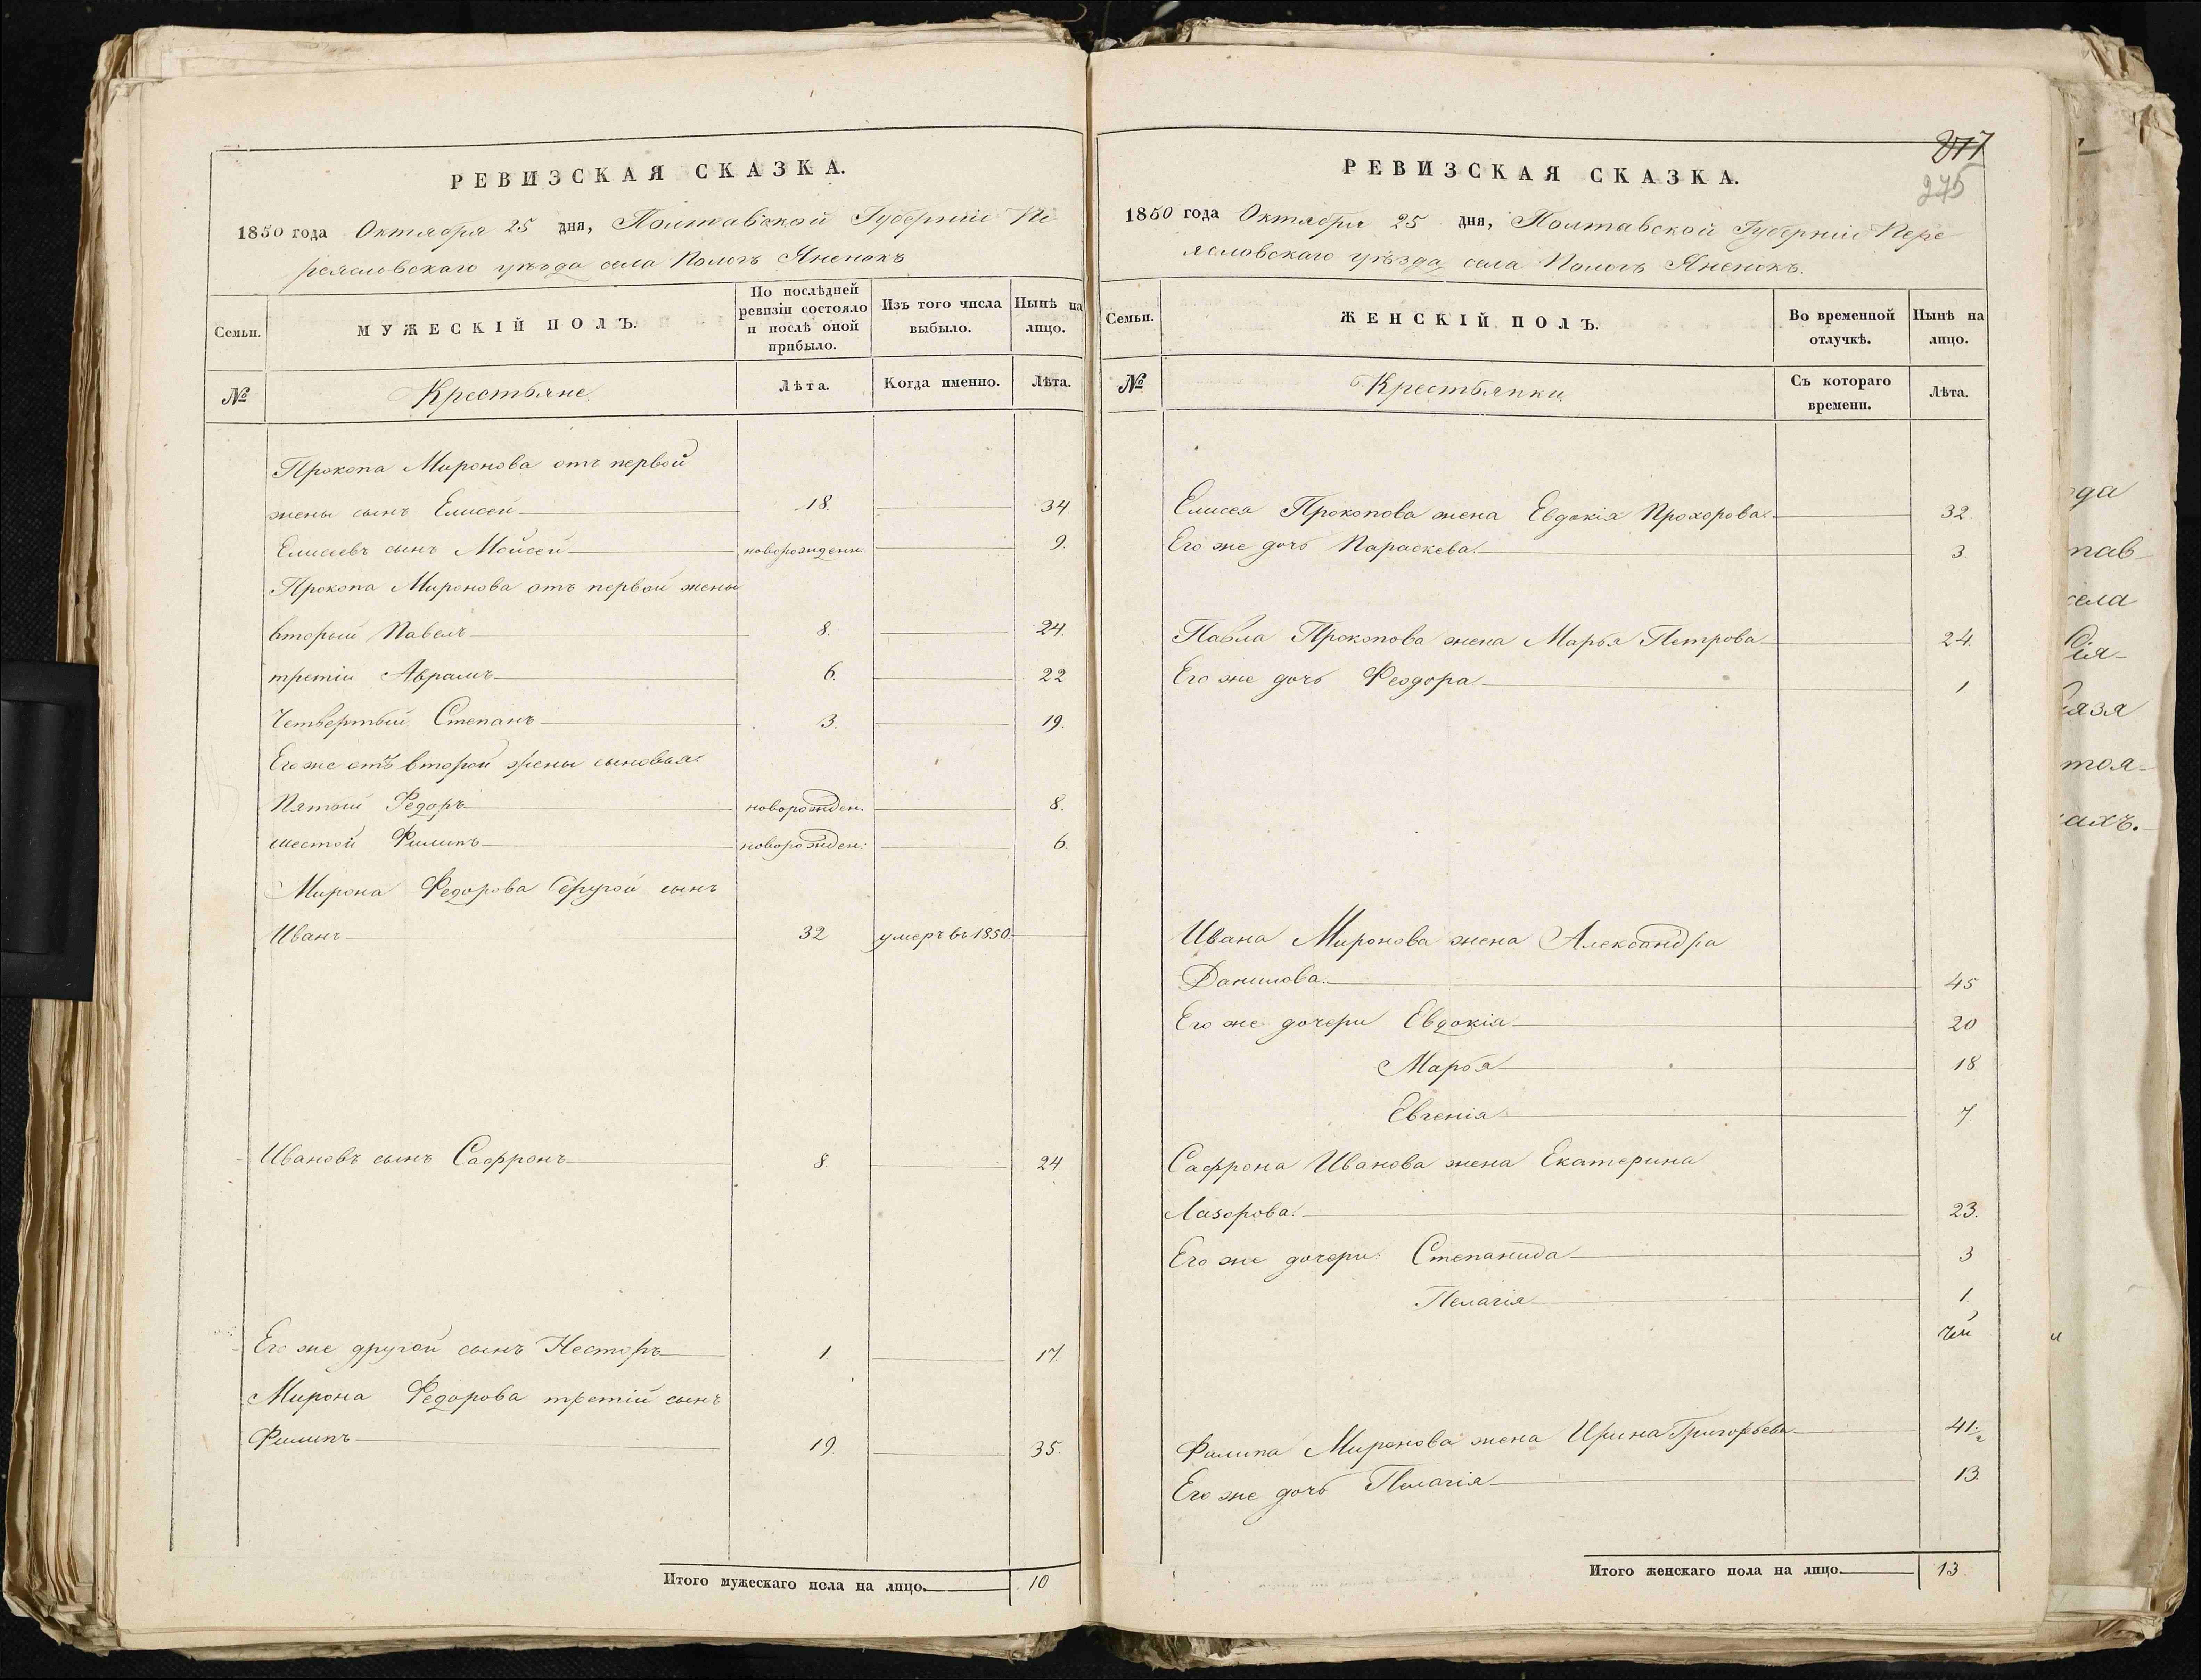 РЕВИЗСКАЯ СКАЗКА.
1850 года Октября 25 дня, Полтавской Губерніи Пе
реясловскаго уѣзда села Пологъ Яненокъ
Семьи.
МУЖЕСКІЙ ПОЛЪ.
По послѣдней ревизіи состояло и послѣ оной прибыло.
Изъ того числа выбыло.
Нынѣ на лицо.
№
Крестьяне.
Лѣта.
Когда именно.
Лѣта.
Прокопа Миронова отъ первой
жены сынъ Елисей 18. 34
Елисеевъ сынъ Мойсей новорожден. 9.
Прокопа Миронова отъ первой жены
вторый Павелъ 8. 24.
третій Аврамъ 6. 22
Четвертый Степанъ 3. 19.
Его же отъ второй жены сыновья:
Пятый Федоръ новорожден. 8.
шестой Филипъ новорожден: 6.
Мирона Федорова другой сынъ
Иванъ 32 умеръ въ 1850.
Ивановъ сынъ Сафронъ 8. 24
Его же другой сынъ Несторъ 1. 17.
Мирона Федорова третій сынъ
Филипъ 19. 35.
Итого мужескаго пола на лицо. 10
277
275
РЕВИЗСКАЯ СКАЗКА.
1850 года Октября 25 дня, Полтавской Губерніи Пере
ясловскаго уѣзда села Пологъ Яненокъ.
Семьи.
ЖЕНСКІЙ ПОЛЪ.
Во временной отлучкѣ.
Нынѣ на лицо.
№
Крестьянки
Съ котораго времени.
Лѣта.
Елисея Прокопова жена Евдокія Прохорова 32.
Его же дочь Параскева. 3.
Павла Прокопова жена Марья Петрова 24.
Его же дочь Феодора 1
Ивана Миронова жена Александра
Данилова. 45
Его же дочери Евдокія 20
Марья 18
Евгенія 7
Сафрона Иванова жена Екатерина
Лазорова. 23.
Его же дочери: Степанида 3
Пелагія 1.
Филипа Миронова жена Ирина Григорьева 41.
Его же дочь Пелагія 13.
Итого женскаго пола на лицо. 13